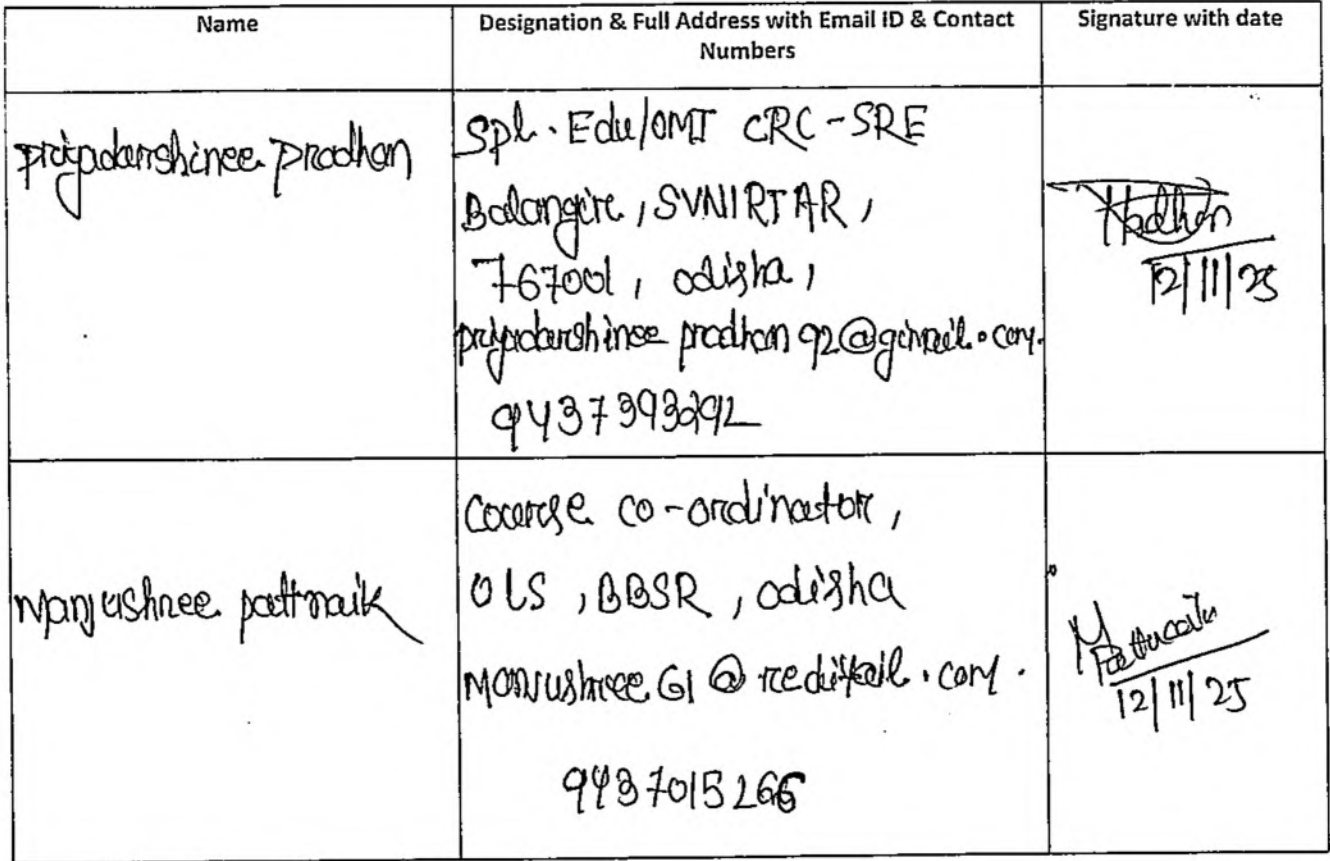 Name
Designation & Full Address with Email ID & Contact
Numbers
Signature with date
Priyadarshinee Pradhan
Spl. Edu/OMT CRC-SRE
Balangir, SVNIRTAR,
767001, odisha,
priyadarshinee pradhan 92@gmail.com.
9437393292
Pradhan
12/11/25
Manjushree pattnaik
Course co-ordinator,
OLS, BBSR, odisha
61@rediffmail.com.
9437015266
M Pattnaik
12/11/25